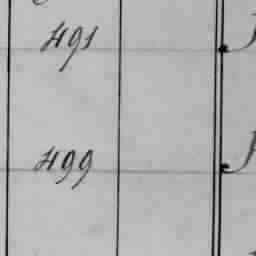 491
499